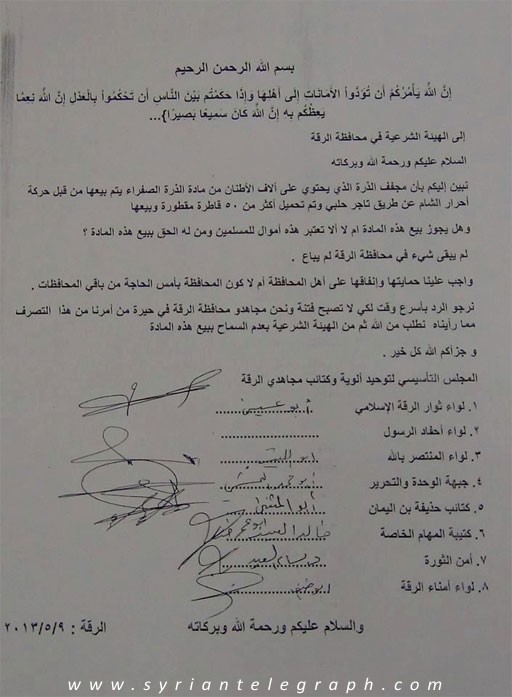 بسم الله الرحمن الرحيم
إنَّ اللَّهَ يَأْمُرُكُمْ أَن تُؤَدُّواْ الأَمَانَاتِ إِلَى أَهْلِهَا وَإِذَا حَكَمْتُم بَيْنَ النَّاسِ أَن تَحْكُمُواْ بِالْعَدْلِ إِنَّ اللَّهَ نِعِمَّا
يَعِظُكُم بِهِ إِنَّ اللَّهَ كَانَ سَمِيعًا بَصِيرًا}...
إلى الهيئة الشرعية في محافظة الرقة
السلام عليكم ورحمة الله وبركاته
نبين إليكم بأن مجفف الذرة الذي يحتوي على آلاف الأطنان من مادة الذرة الصفراء يتم بيعها من قبل حركة
أحرار الشام عن طريق تاجر حلبي وتم تحميل أكثر من ٥٠ قاطرة مقطورة وبيعها
وهل يجوز بيع هذه المادة ام لا ألا تعتبر هذه أموال للمسلمين ومن له الحق ببيع هذه المادة ؟
لم يبقى شيء في محافظة الرقة لم يباع .
واجب علينا حمايتها وإنفاقها على أهل المحافظة أم لا كون المحافظة بأمس الحاجة من باقي المحافظات .
نرجو الرد بأسرع وقت لكي لا تصبح فتنة ونحن مجاهدو محافظة الرقة في حيرة من أمرنا من هذا التصرف
مما رأيناه نطلب من الله ثم من الهيئة الشرعية بعدم السماح ببيع هذه المادة
و جزآكم الله كل خير .
المجلس التأسيسي لتوحيد ألوية وكتائب مجاهدي الرقة
١. لواء ثوار الرقة الإسلامي
٢. لواء أحفاد الرسول
٣. لواء المنتصر بالله
٤. جبهة الوحدة والتحرير
٥. كتائب حذيفة بن اليمان
٦. كتيبة المهام الخاصة
٧. أمن الثورة
٨. لواء أمناء الرقة
والسلام عليكم ورحمة الله وبركاته
الرقة : ٢٠١٣/٥/٩
www.syriantelegraph.com